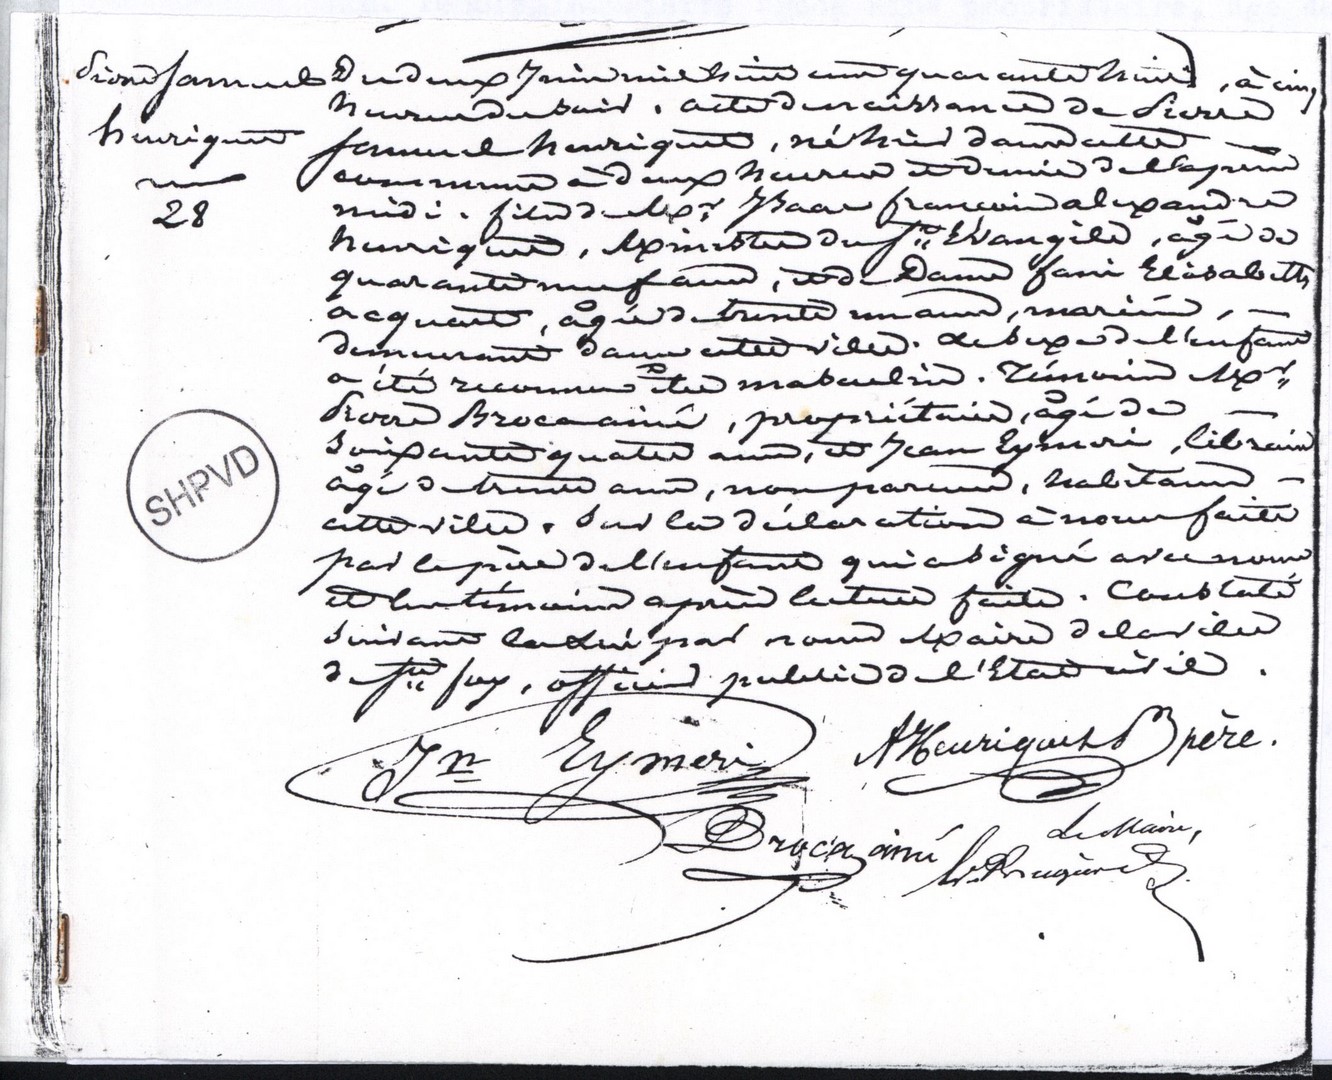 Pierre Samuel
henriquet
n°
28
Du deux Juin mil huit cent quarante huit, à cinq
heures du soir. acte de naissance de Pierre
Samuel henriquet, né hier dans cette
commune à deux heures et demie de l'après
midi. fils de Mr. Isaac françois alexandre
henriquet, Ministre du St. Evangile, âgé de
quarante neuf ans, et de Dame fani Elisabeth
acquart, âgée de trente un ans, mariés,
demeurant dans cette ville. Le sexe de l'enfant
a été reconnu être masculin. Témoins Mrs.
Pierre Broca ainé, propriétaire, âgé de
soixante quatre ans, et Jean Eymeri, libraire
âgé de trente ans, non parens, habitans
cette ville. Sur la déclaration à nous faite
par le père de l'enfant qui a signé avec nous
et les témoins après lecture faite. Constaté
suivant la Loi par nous Maire de la ville
de Ste foy, officier public de l'Etat civil.
Jn Eymeri
AHenriquet père.
Broca ainé
Le Maire,
SHPVD